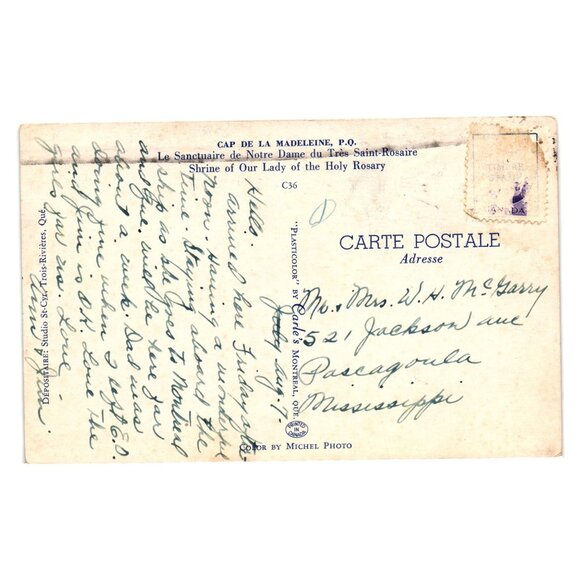 CAP DE LA MADELEINE, P.Q.
Le Sanctuaire de Notre Dame du Très Saint-Rosaire
Shrine of Our Lady of the Holy Rosary
C36
CARTE POSTALE
Adresse
Mr. & Mrs. W. H. McGarry
521 Jackson ave
Pascagoula
Mississippi
Friday Aug. 9.
Hello.
arrived here Friday after
noon. Having a wonderful
time. Staying aboard the
ship as she goes to Montreal
and Joe. will be here for
about a week. Dad was
doing fine when I left S.D.
and Jim is OK Love the
girls for us. Love
Ann & Jim
DÉPOSITAIRE: Studio St-Cyr, Trois-Rivières, Qué.
"PLASTICOLOR" BY Carle's MONTREAL, QUE.
PRINTED IN CANADA
COLOR BY MICHEL PHOTO